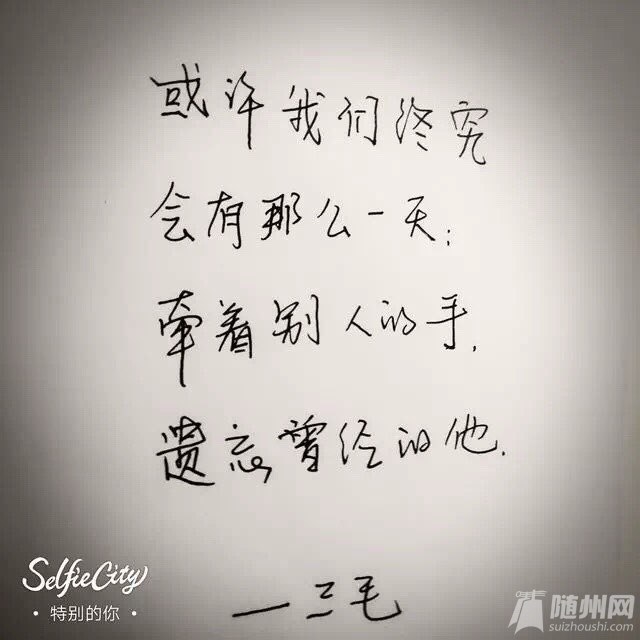 或许我们终究
会有那么一天：
牵着别人的手，
遗忘曾经的他.
—三毛
SelfieCity
·特别的你·
随州网
suizhoushi.com